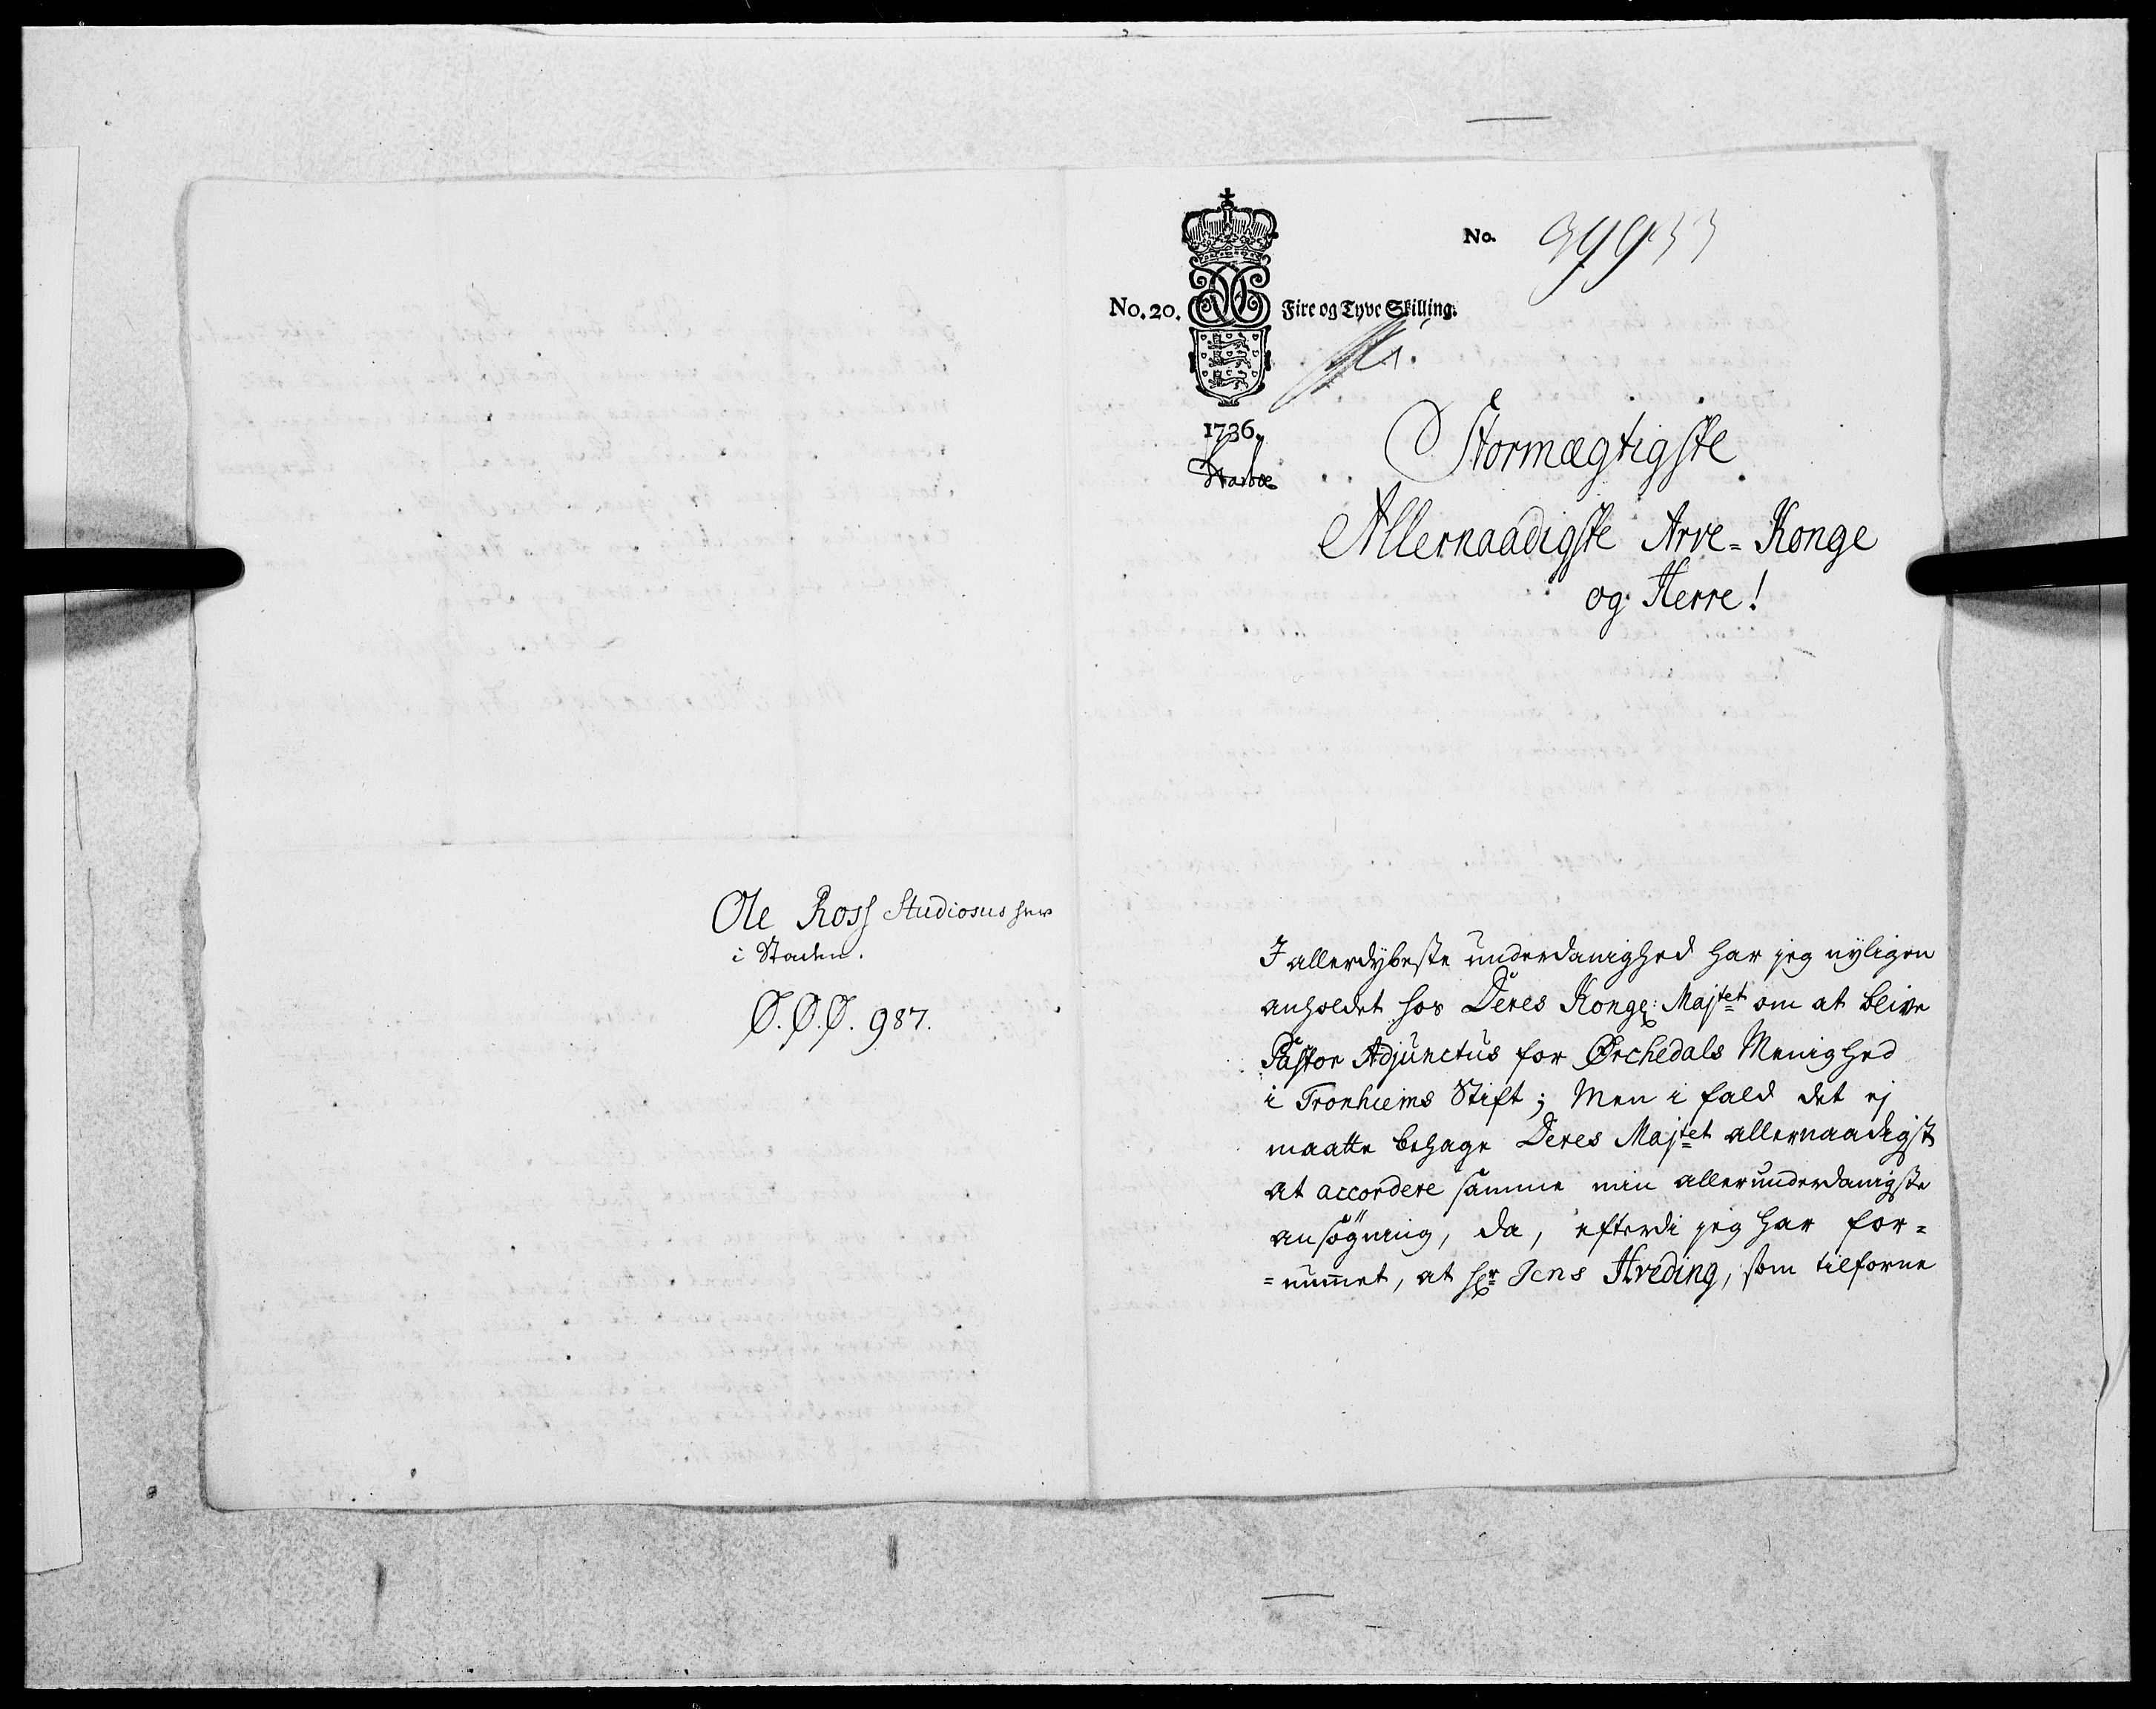 Ole Ross Studiosus her
i Staden.
Ø.Ø.Ø. 987.
No.
No. 20. Fire og Tyve Skilling.
1736.
Stormægtigste
Allernaadigste Arve-Konge
og Herre!
I allerdybeste underdanighed har jeg nyligen
anholdet hos Deres Kongl: Majtet om at blive
Pastor Adjunctus for Ørchedals Menighed
i Tronhiems Stift; Men i fald det ej
maatte behage Deres Majtet allernaadigst
at accordere samme min allerunderdanigste
ansøgning, da, efterdi jeg har for=
=nummet, at Hr Jens Hveding, som tilforne